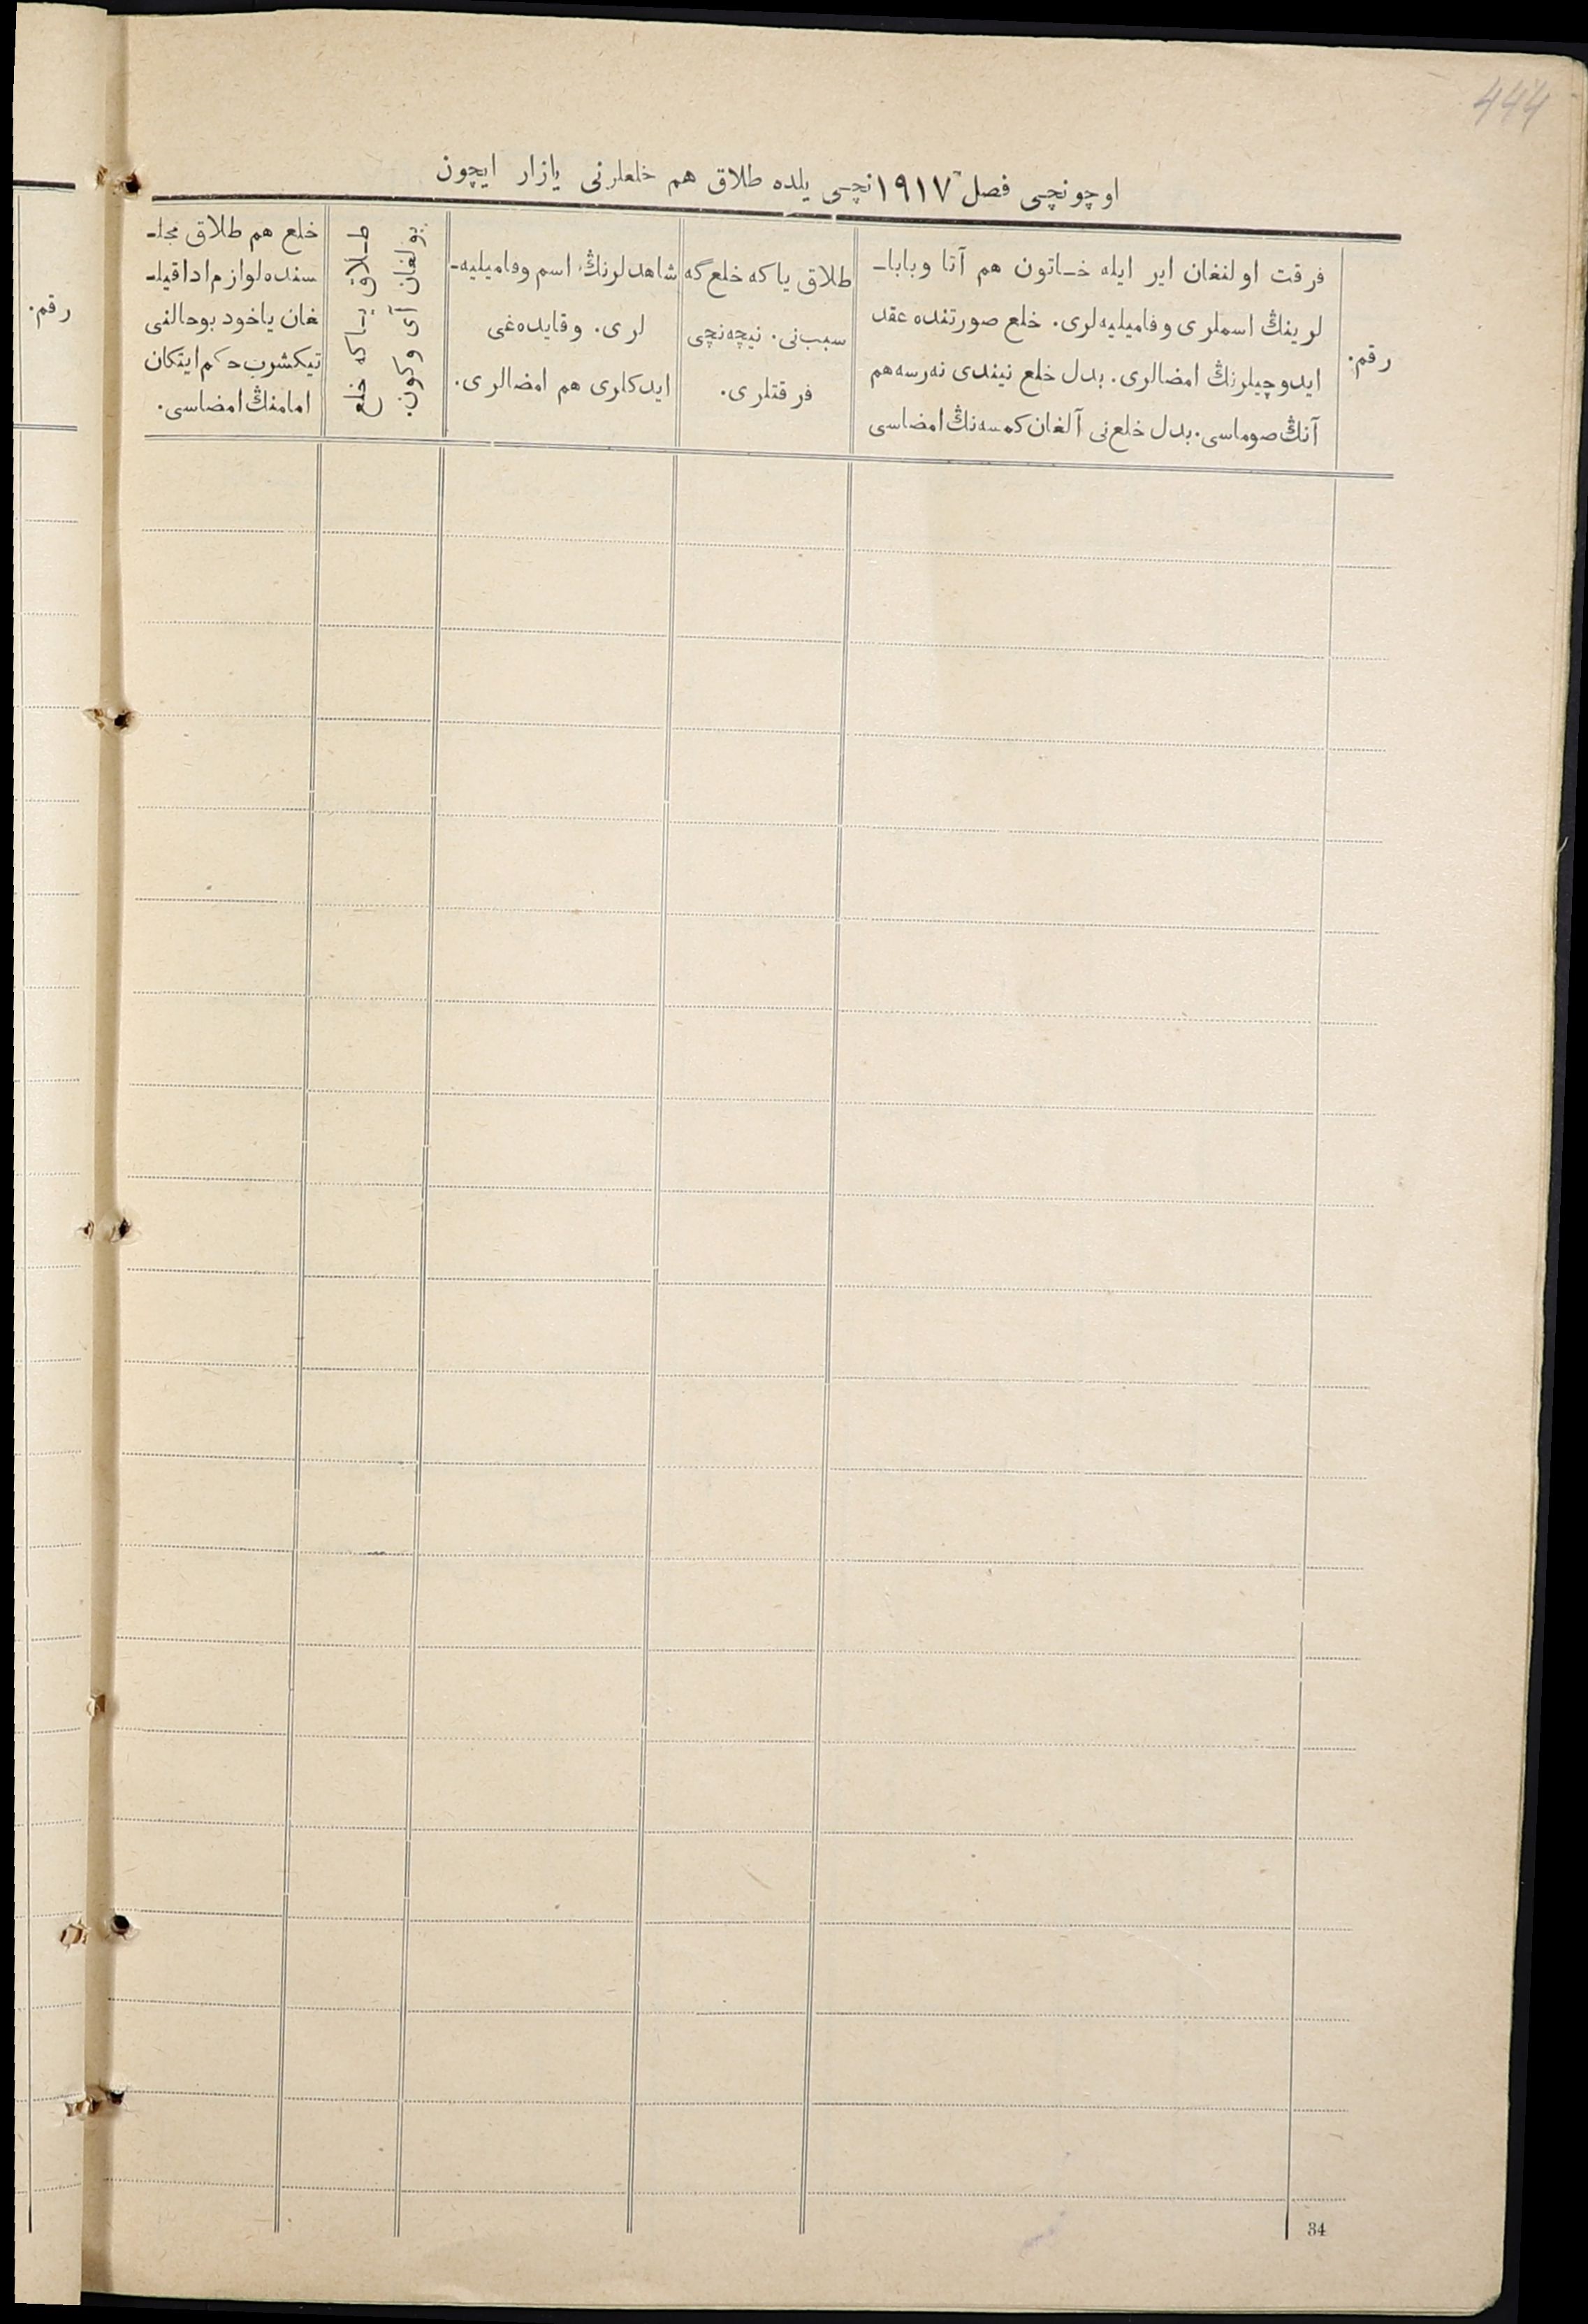 444
اوچونچی فصل ۱۹۱۷نچی یلده طلاق هم خلعلرنی یازار ایچون
رقم.
فرقت اولنغان ایر ایله خـاتون هم آتا وبابا-
لرینڭ اسملری وفامیلیه‌لری. خلع صورتنده عقد
ایدوچیلرنڭ امضالری. بدل خلع نیندی نه‌رسه‌هم
آنڭ صوماسی. بدل خلع‌نی آلغان کمسه‌نڭ امضاسی
طلاق یاکه خلع‌گه
سبب‌نی. نیچه‌نچی
فرقتلری.
شاهدلرنڭ اسم وفامیلیه-
لری. وقایده‌غی
ایدکلری هم امضالری.
طـلاق یـاکه خلع
بولغان آی وکون.
خلع هم طلاق مجلـ
سنده لوازم ادا قیلـ
غان یاخود بوحالنی
تیکشرب حکم ایتکان
امامنڭ امضاسی.
رقم.
34